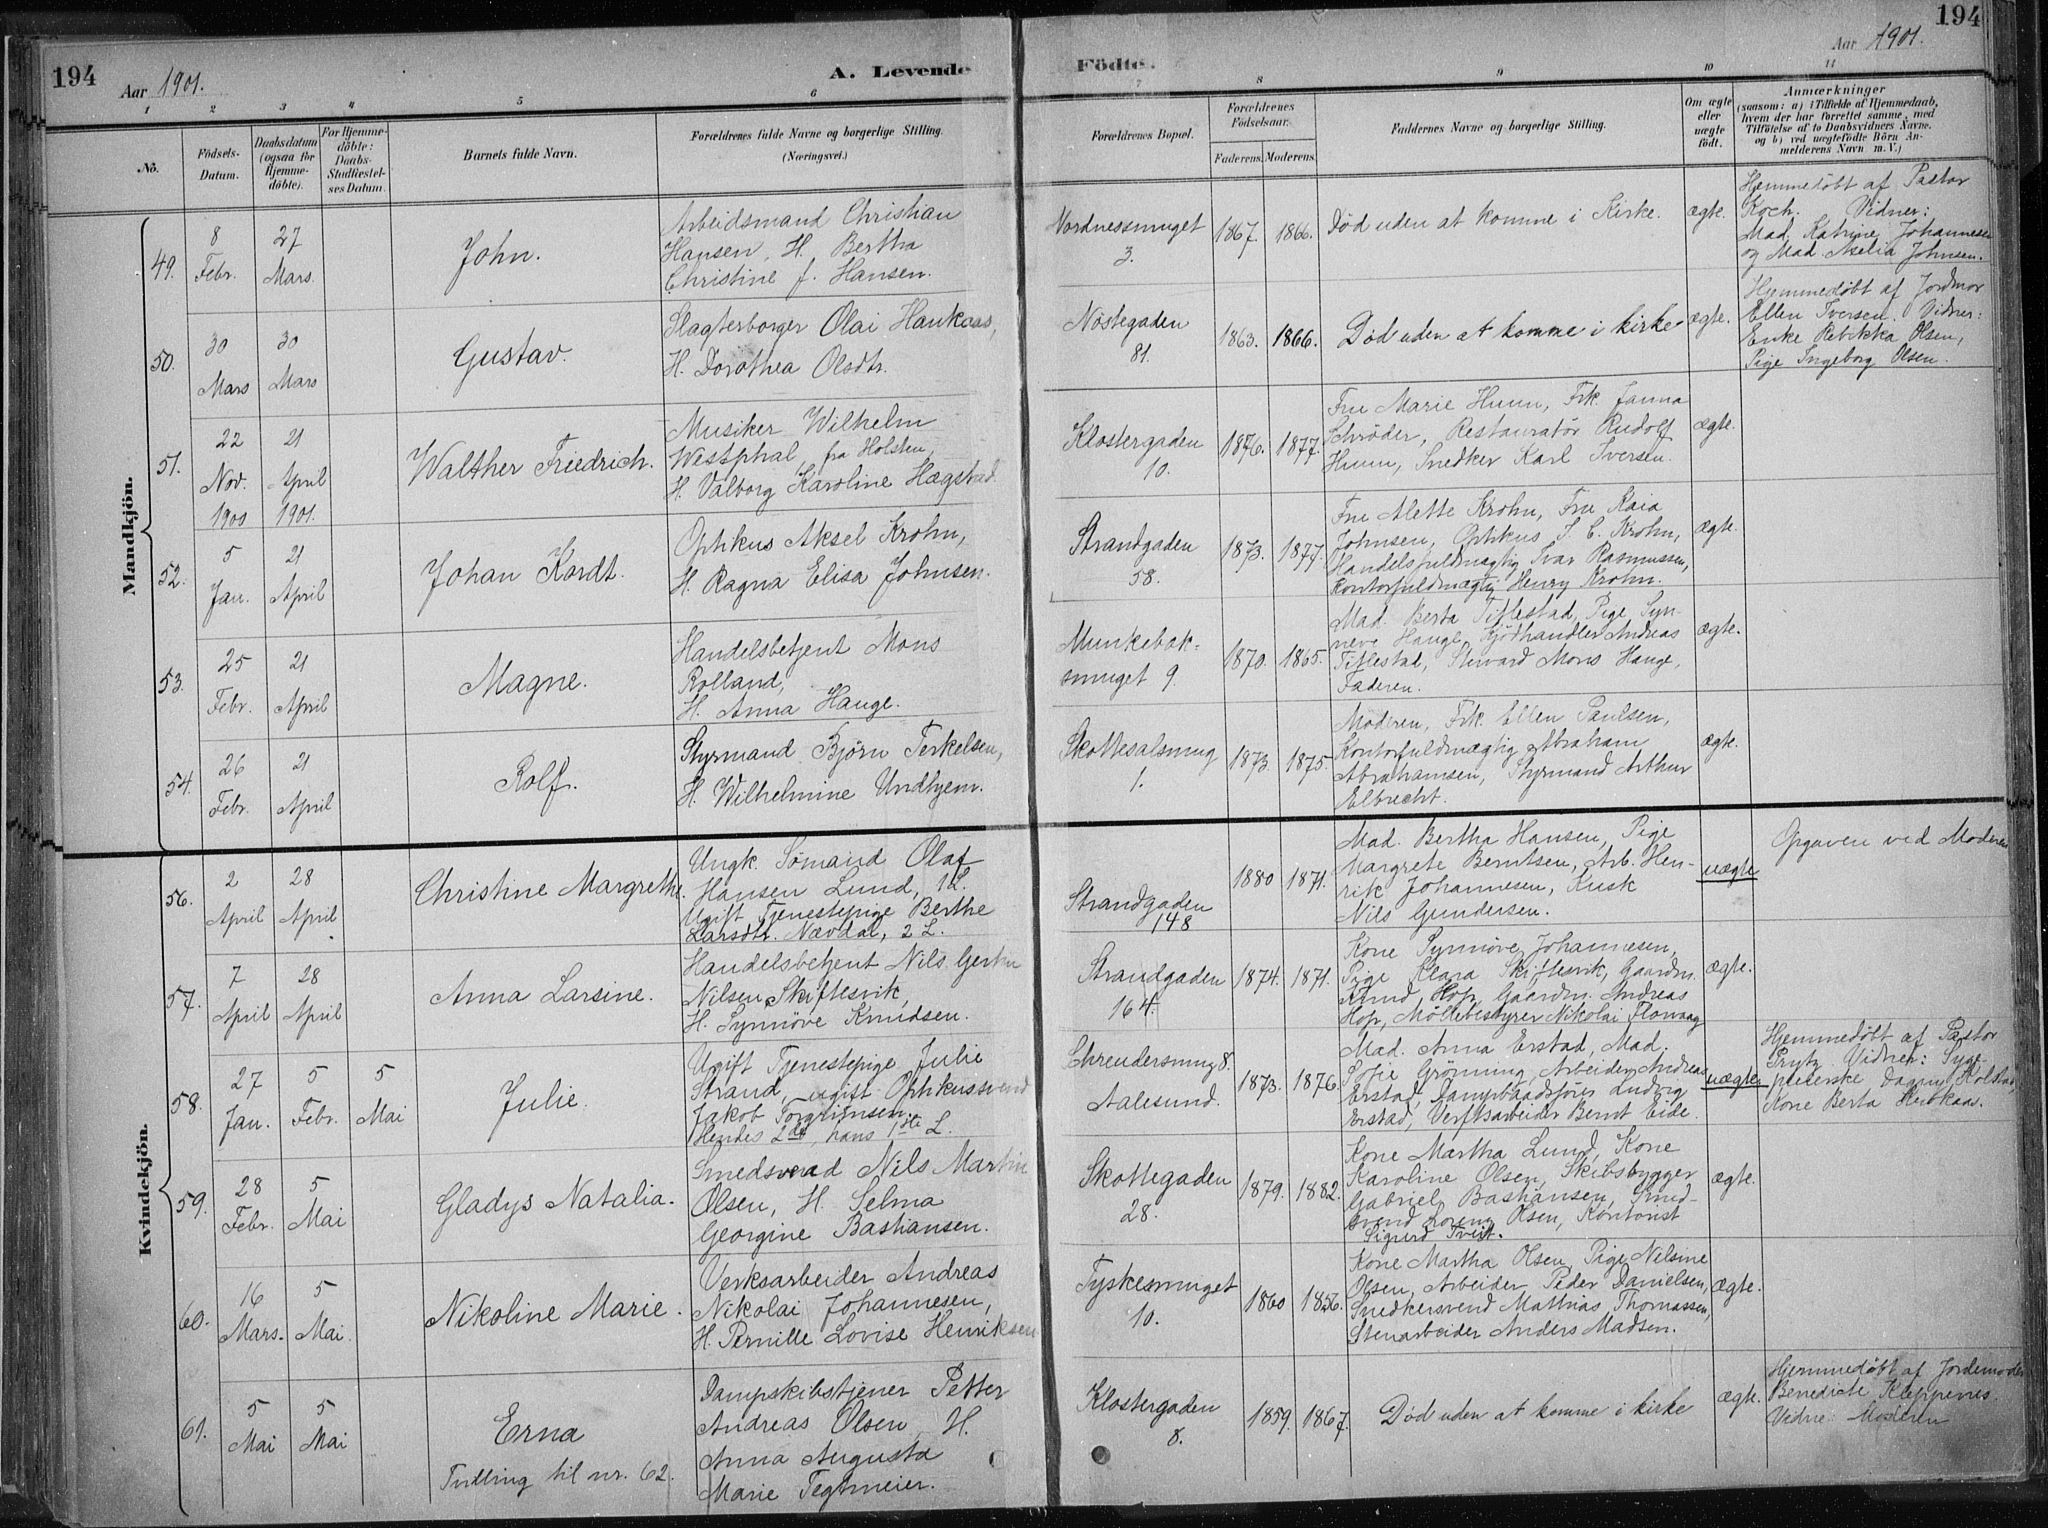 194
Aar 1901.
A. Levende
Födte.
Aar 1901.
194
1
2
3
4
5
6
7
8
9
10
11
No.
Födsels-
Datum.
Daabsdatum
(ogsaa for
Hjemme-
døbte).
For Hjemme-
døbte:
Daabs-
Stadfæstel-
ses Datum.
Barnets fulde Navn.
Forældrenes fulde Navne og borgerlige Stilling.
(Næringsvei.)
Forældrenes Bopæl.
Forældrenes
Födselsaar.
Faderens.
Moderens.
Faddernes Navne og borgerlige Stilling.
Om ægte
eller
uægte
født.
Anmærkninger
(saasom: a) i Tilfælde af Hjemmedaab,
hvem der har forrettet samme, med
Tilføielse af to Daabsvidners Navne.
og b) ved uægtefødte Börn An-
melderens Navn m. V.)
Mandkjön.
49.
8
Febr.
27
Mars.
John.
Arbeidsmand Christian
Hansen, H. Bertha
Christine f. Hansen.
Nordnessmuget
3.
1867.
1866.
Død uden at komme i Kirke.
ægte.
Hjemmedøbt af Pastor
Koch. Vidner:
Mad. Katrine Johannesen
og Mad. Johnsen.
50.
30
Mars
30
Mars
Gustav.
Slagterborger Olai Haukaas,
H. Dorothea Olsdtr.
Nöstegaden
81.
1863.
1866.
Död uden at komme i kirke
ægte.
Hjemmedøbt af Jordmor
Ellen Iversen. Vidner:
Enke Rebikka Olsen,
Pige Ingeborg Olsen.
51.
22
Nov.
1900
21
April
1901.
Walther Friedrich.
Musiker Wilhelm
Westphal, fra Holsten,
H. Valborg Karoline Hægstad.
Klostergaden
10.
1876.
1877.
Fru Marie Huun, Frk. Janna
Schrøder, Restauratør Rudolf
Huun, Snedker Karl Iversen.
ægte.
52.
5
Jan.
21
April
Johan Kordt.
Optikus Aksel Krohn,
H. Ragna Elisa Johnsen.
Strandgaden
58.
1873.
1877.
Fru Alette Krohn, Fru Kaia
Johnsen, Optikus J. C. Krohn,
Handelsfuldmægtig Ivar Rasmussen,
Kontorfuldmægtig Henry Krohn.
ægte.
53.
25
Febr.
21
April
Magne.
Handelsbetjent Mons
Rolland,
H. Anna Hauge.
Munkebæk-
smuget 9.
1870.
1865.
Mad. Berta Titlestad, Pige Syn-
neve Hauge, Kjödhandler Andreas
Titlestad, Steward Mons Hauge,
Faderen.
ægte.
54.
26
Febr.
21
April
Rolf.
Styrmand Bjørn Terkelsen,
H. Wilhelmine Undhjem.
Skottesalsmug
1.
1873.
1875.
Moderen, Frk. Ellen Paulsen,
Kontorfuldmægtig Abraham
Abrahamsen, Styrmand Arthur
Elbrecht.
ægte.
Kvindekjön.
56.
2
April
28
April
Christine Margrethe.
Ungk. Sømand Olaf
Hansen Lund, 1 L.
Ugift Tjenestepige Berthe
Larsdtr. Nævdal, 2 L.
Strandgaden
148
1880
1871.
Mad. Bertha Hansen, Pige
Margrete Berntsen, Arb. Hen-
rik Johannesen, Kusk
Nils Gundersen.
uægte
Opgaven ved Moderen
57.
7
April
28
April
Anna Larsine.
Handelsbetjent Nils Gerhm
Nilsen Skiftesvik,
H. Synnöve Knudsen.
Strandgaden
164.
1874.
1871.
Kone Synnøve Johannesen,
Pige Klara Skiftesvik, Gaardm.
Knud Hop, Gaardm. Andreas
Hop, Möllebestyrer Nikolai Flowaag
ægte.
58.
27
Jan.
5
Febr.
5
Mai
Julie.
Ugift Tjenestepige Julie
Strand, ugift Optikussvend
Jakob Torgrimsen.
Hendes 2det, hans 1ste L.
Schreudersmug 8.
Aalesund.
1873.
1876.
Mad. Anna Erstad, Mad.
Sofie Grönning, Arbeider Andreas
Erstad, Dampbaadsfører Ludvig
Erstad, Verftsarbeider Bernt Eide.
uægte
Hjemmedøbt af Pastor
Prytz. Vidner: Syge-
pleierske Dagny Holstad,
Kone Berta Haukaas.
59.
28
Febr.
5
Mai
Gladys Natalia.
Smedsvend Nils Martin
Olsen, H. Selma
Georgine Bastiansen.
Skottegaden
28.
1879.
1882.
Kone Martha Lund, Kone
Karoline Olsen, Skibsbygger
Gabriel Bastiansen, Smed-
svend Lorens Olsen, Kontorist
Sigurd Tveit.
ægte.
60.
16
Mars.
5
Mai.
Nikoline Marie.
Verksarbeider Andreas
Nikolai Johannesen,
H. Pernille Lovise Henriksen
Tyskesmuget
10.
1860
1856.
Kone Martha Olsen, Pige Nelsine
Olsen, Arbeider Peder Danielsen,
Snedkersvend Mathias Thomassen,
Stenarbeider Anders Madsen.
ægte.
61.
5
Mai
5
Mai
Erna
Tvilling til nr. 62.
Dampskibstjener Petter
Andreas Olsen, H.
Anna Augusta
Marie Tegtmeier.
Klostergaden
8.
1859.
1867.
Död uden at komme i kirke
ægte.
Hjemmedøbt af Jordemoder
Benedicte Kleppenes
Vidne: Moderen